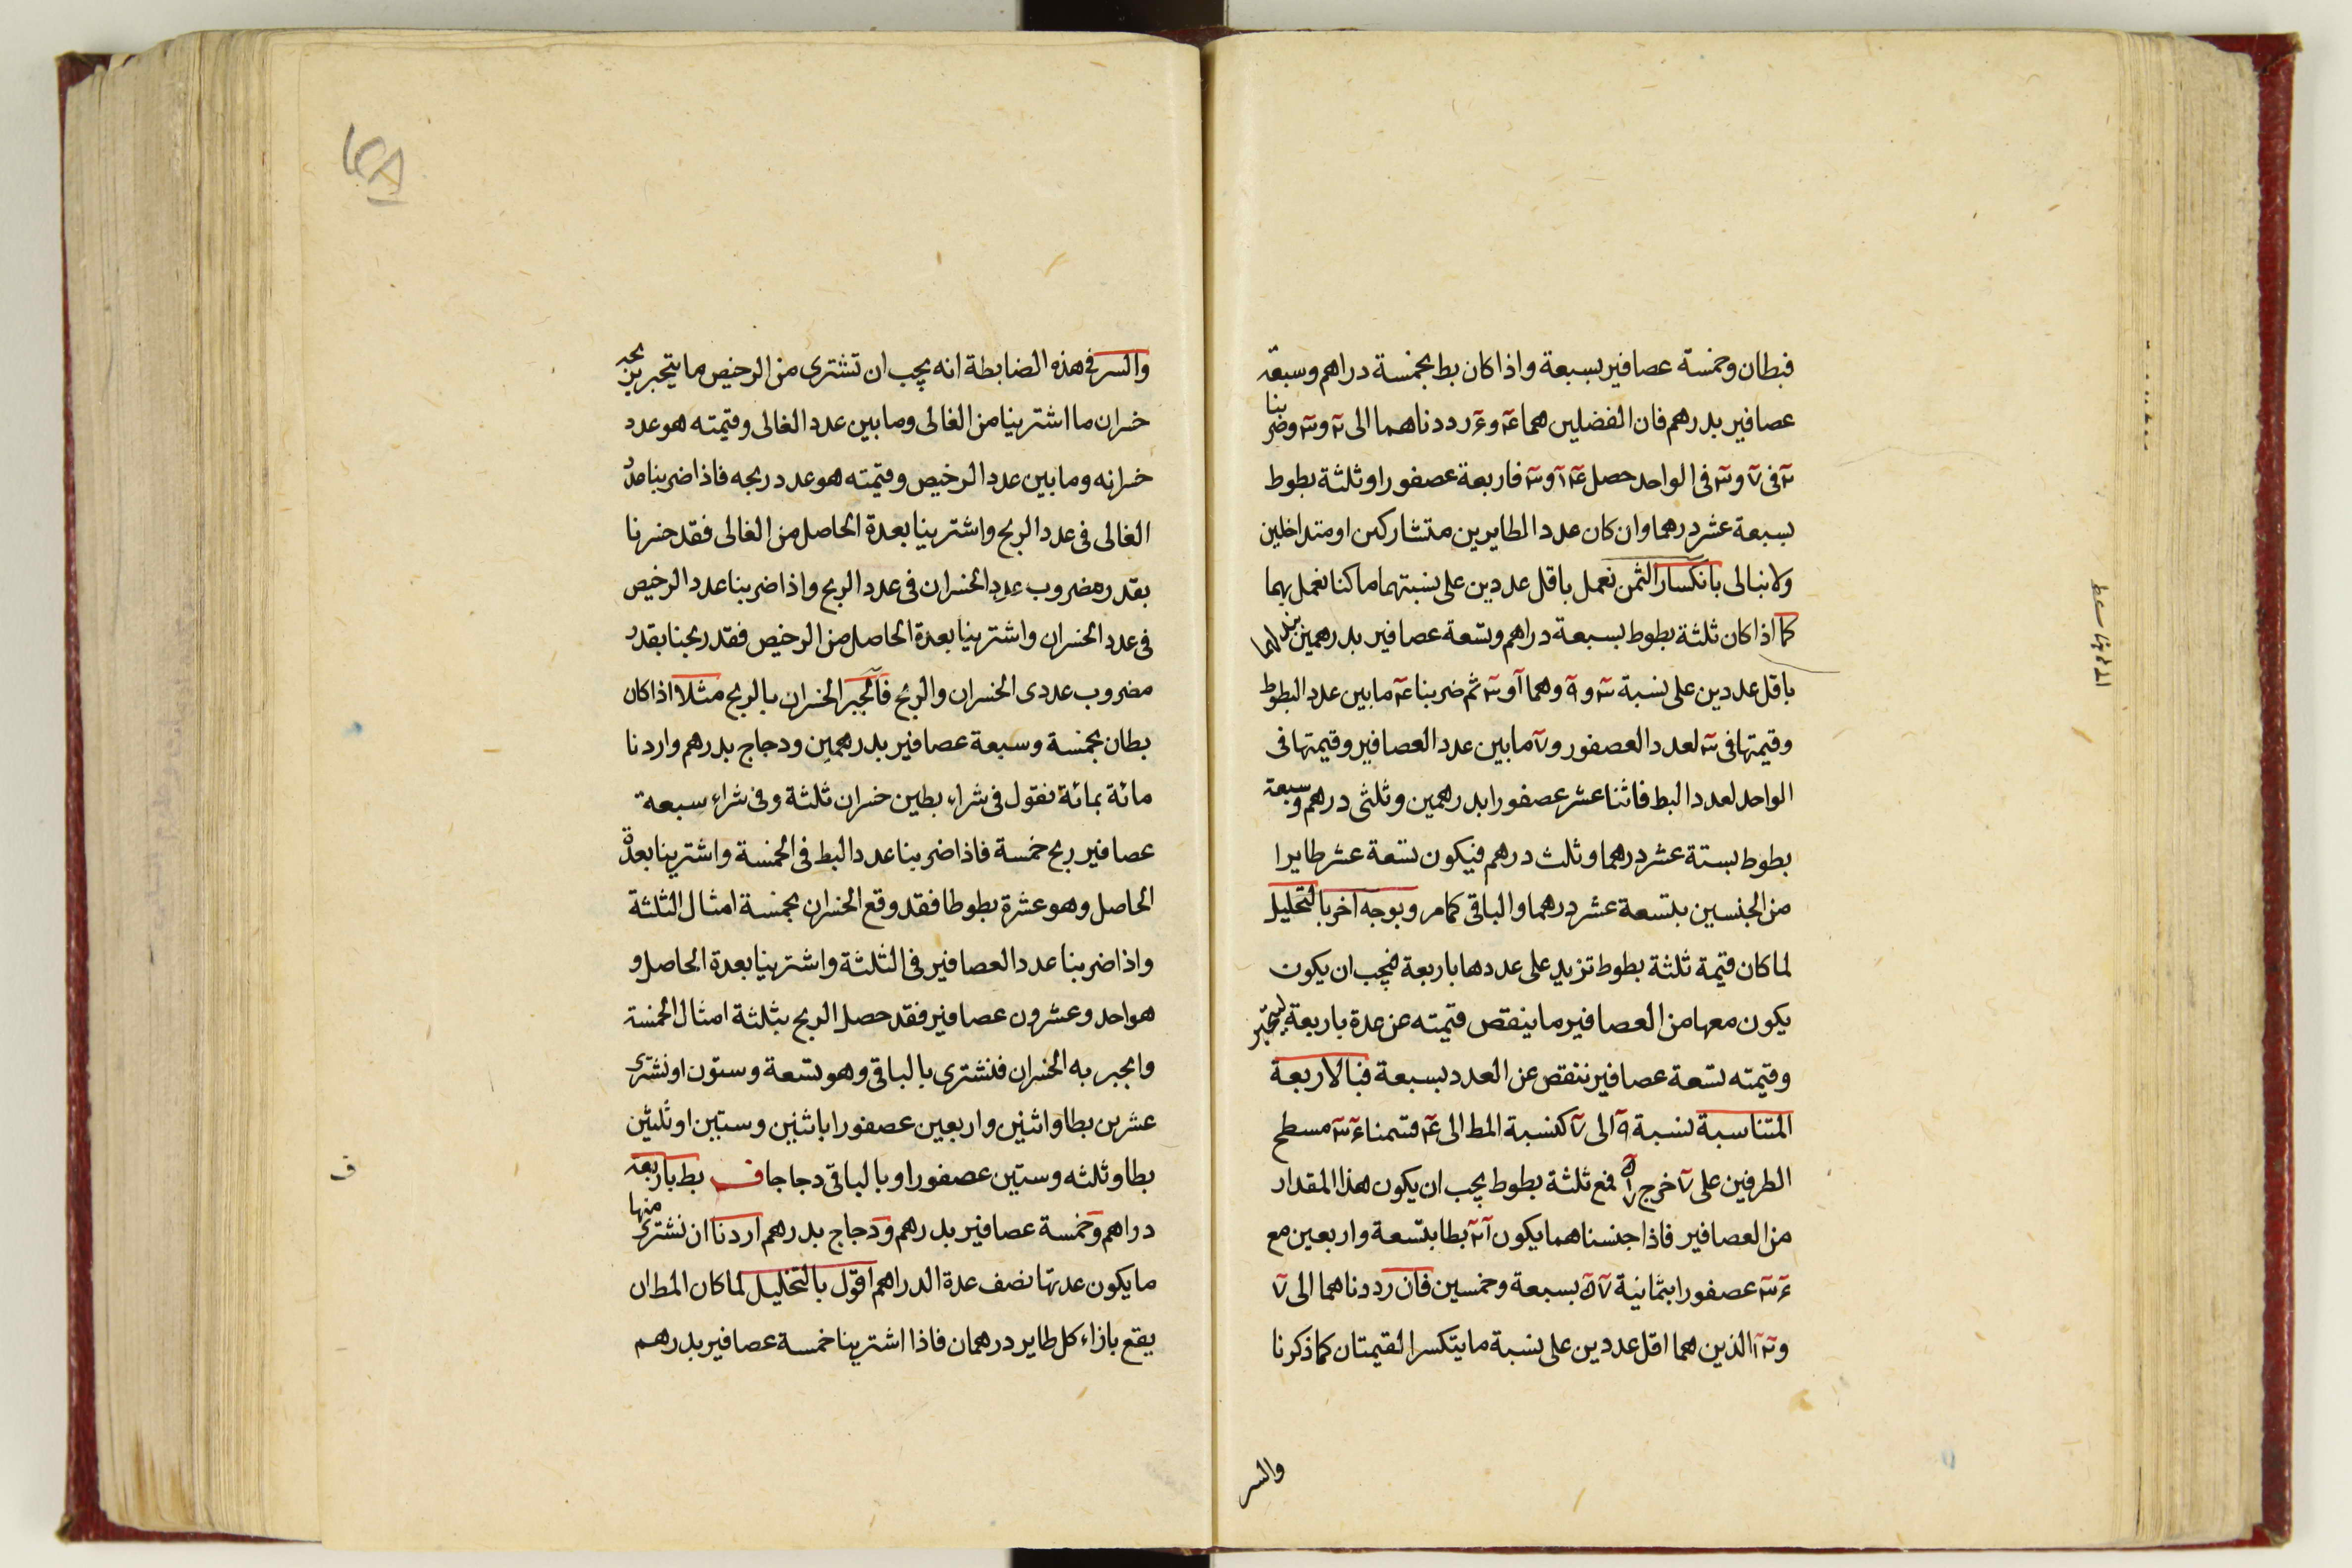 فبطان وخمسة عصافير بسبعة واذا كان بط بخمسة دراهم وسبعة
عصافير بدرهم فان الفضلين هما ٤ و٦ رددناهما الى ٢ و٣ وضربنا
٢ فى ٧ و٣ فى الواحد حصل ١٤ و٣ فاربعة عصفورا وثلثة بطوط
بسبعة عشر درهما وان كان عدد الطايرين متشاركين او متداخلين
ولا نبالى بانكسار الثمن نعمل باقل عددين على نسبتهما ما كنا نعمل بهما
كما اذا كان ثلثة بطوط بسبعة دراهم وتسعة عصافير بدرهمين
باقل عددين على نسبة ٣ و٩ وهما ١ و٣ ثم ضربنا ٤ ما بين عدد البطوط
وقيمتها فى ٣ لعدد العصفور و٧ ما بين عدد العصافير وقيمتها فى
الواحد لعدد البط فاثنا عشر عصفورا بدرهمين وثلثى درهم وسبعة
بطوط بستة عشر درهما وثلث درهم فيكون تسعة عشر طايرا
من الجنسين بتسعة عشر درهما والباقى كما مر وبوجه اخر بالتحليل
لما كان قيمة ثلثة بطوط تزيد على عددها باربعة فيجب ان يكون
يكون معها من العصافير ما ينقص قيمته عن عدة باربعة ليتجبر
وقيمته تسعة عصافير تنقص عن العدد بسبعة فبالاربعة
المتناسبة نسبة ٩ الى ٧ كنسبة المط الى ٤ قسمنا ٣٦ مسطح
الطرفين على ٧ خرج ٥ ١ ٧ فمع ثلثة بطوط يجب ان يكون هذا المقدار
من العصافير فاذا جنسناهما يكون ٢١ بطا بتسعة واربعين مع
٣٦ عصفورا بثمانية ٥٧ بسبعة وخمسين فان رددناهما الى ٧
و١٢ الذين هما اقل عددين على نسبة ما يتكسر القيمتان كما ذكرنا
والسر
والسر فى هذه الضابطة انه يجب ان تشترى من الرخيص ما يتجبر بربحه
خسران ما اشترينا من الغالى وما بين عدد الغالى وقيمته هو عدد
خسرانه وما بين عدد الرخيص وقيمته هو عدد ربحه فاذا ضربنا عدد
الغالى فى عدد الربح واشترينا بعدة الحاصل من الغالى فقد خسرنا
بقدر مضروب عدد الخسران فى عدد الربح واذا ضربنا عدد الرخيص
فى عدد الخسران واشترينا بعدة الحاصل من الرخيص فقد ربحنا بقدر
مضروب عددى الخسران والربح فانجبر الخسران بالربح مثلا اذا كان
بطان بخمسة وسبعة عصافير بدرهمين ودجاج بدرهم واردنا
مائة بمائة نقول فى شراء بطين خسران ثلثة وفى شراء سبعة
عصافير ربح خمسة فاذا ضربنا عدد البط فى الخمسة واشترينا بعدة
الحاصل وهو عشرة بطوطا فقد وقع الخسران بخمسة امثال الثلثة
واذا ضربنا عدد العصافير فى الثلثة واشترينا بعدة الحاصل و
هو احد وعشرون عصافير فقد حصل الربح بثلثة امثال الخمسة
وانجبر به الخسران فنشترى بالباقى وهو تسعة وستون او نشترى
عشرين بطا واثنين واربعين عصفورا باثنين وستين او ثلثين
بطا وثلثه وستين عصفورا وبالباقى دجاجا ف بط باربعة
دراهم وخمسة عصافير بدرهم ودجاج بدرهم اردنا ان نشترى منها
ما يكون عدتها نصف عدة الدراهم اقول بالتحليل لما كان المط ان
يقع بازاء كل طاير درهمان فاذا اشترينا خمسة عصافير بدرهم